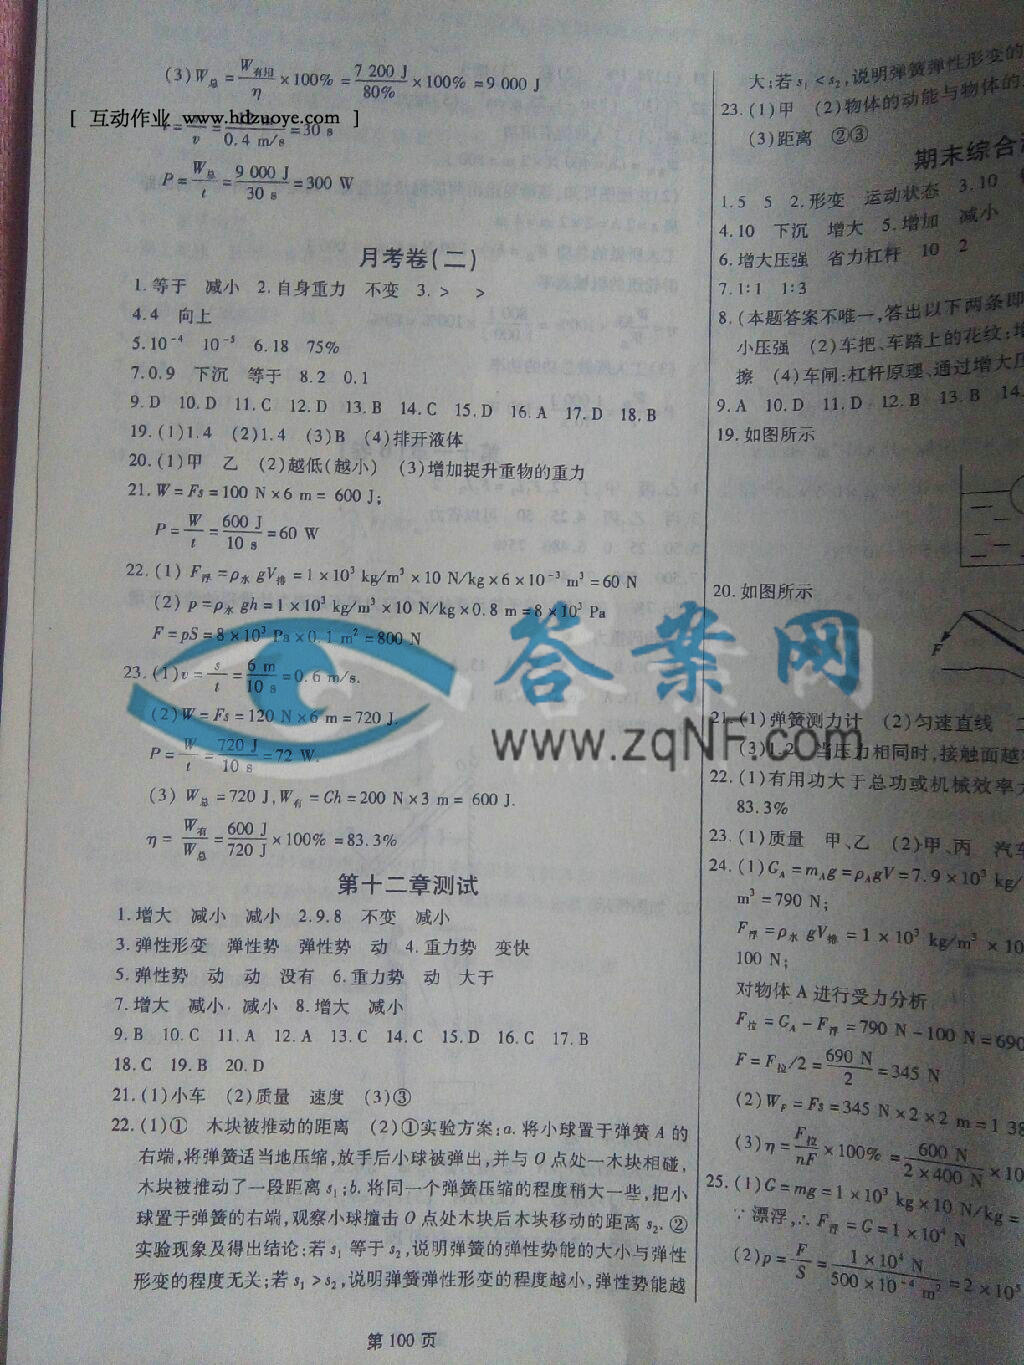 (3)W总=W有用/η×100%=7 200 J/80%×100%=9 000 J
[ 互动作业 www.hdzuoye.com ]
v=0.4 m/s=30 s
P=W总/t=9 000 J/30 s=300 W
月考卷(二)
1.等于 减小 2.自身重力 不变 3.> >
4.4 向上
5.10⁻⁴ 10⁻⁵ 6.18 75%
7.0.9 下沉 等于 8.2 0.1
9.D 10.D 11.C 12.D 13.B 14.C 15.D 16.A 17.D 18.B
19.(1)1.4 (2)1.4 (3)B (4)排开液体
20.(1)甲 乙 (2)越低(越小) (3)增加提升重物的重力
21.W=Fs=100 N×6 m= 600 J;
P=W/t=600 J/10 s=60 W
22.(1) F浮=ρ水 gV排=1×10³ kg/m³×10 N/kg×6×10⁻³ m³=60 N
(2) p=ρ水 gh=1×10³ kg/m³×10 N/kg×0.8 m=8×10³ Pa
F=pS=8×10³ Pa×0.1 m²=800 N
23.(1)v=s/t=6 m/10 s=0.6 m/s.
(2)W=Fs=120 N×6 m=720 J.
P=W/t=720 J/10 s=72 W.
(3) W总=720 J,W有=Gh=200 N×3 m= 600 J.
η=W有/W总=600 J/720 J×100%=83.3%
第十二章测试
1.增大 减小 减小 2.9.8 不变 减小
3.弹性形变 弹性势 弹性势 动 4.重力势 变快
5.弹性势 动 动 没有 6.重力势 动 大于
7.增大 减小 减小 8.增大 减小
9.B 10.C 11.A 12.A 13.C 14.C 15.D 16.C 17.B
18.C 19.B 20.D
21.(1)小车 (2)质量 速度 (3)③
22.(1)① 木块被推动的距离 (2)①实验方案:a.将小球置于弹簧 A 的
右端,将弹簧适当地压缩,放手后小球被弹出,并与 O 点处一木块相碰,
木块被推动了一段距离 s₁;b.将同一个弹簧压缩的程度稍大一些,把小
球置于弹簧的右端,观察小球撞击 O 点处木块后木块移动的距离 s₂. ②
实验现象及得出结论:若 s₁ 等于 s₂,说明弹簧的弹性势能的大小与弹性
形变的程度无关;若 s₁>s₂,说明弹簧弹性形变的程度越小,弹性势能越
第 100 页
大;若 s₁<s₂,说明弹簧弹性形变的
23.(1)甲 (2)物体的动能与物体的
(3)距离 ②③
期末综合
1.5 5 2.形变 运动状态 3.10
4.10 下沉 增大 5.增加 减小
6.增大压强 省力杠杆 10 2
7.1:1 1:3
8.(本题答案不唯一,答出以下两条即
小压强 (2)车把、车踏上的花纹:增
擦 (4)车闸:杠杆原理、通过增大压
9.A 10.D 11.D 12.B 13.B 14.
19.如图所示
20.如图所示
F
21.(1)弹簧测力计 (2)匀速直线 二
(3)1.2 当压力相同时,接触面越
22.(1)有用功大于总功或机械效率大
83.3%
23.(1)质量 甲、乙 (2)甲、丙 汽车
24.(1)GA=mAg=ρAgV=7.9×10³ kg/
m³=790 N;
F浮=ρ水 gV排=1×10³ kg/m³×10
100 N;
对物体 A 进行受力分析
F拉=GA-F浮=790 N-100 N=690
F=F拉/2=690 N/2=345 N
(2)WF=Fs=345 N×2×2 m=1 38
(3)η=F拉/nF×100%=600 N/2×400 N×10
25.(1)G=mg=1×10³ kg×10 N/kg=
∵漂浮,∴F浮=G=1×10⁴ N
(2)p=F/S=1×10⁴ N/500×10⁻⁴ m²=2×10⁵
答案网
www.zqNF.com